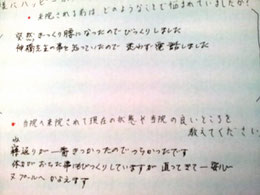 来院される前は、どのようなことで悩まれていましたか?
突然ぎっくり腰になったのでびっくりしました
仲橋先生の事を知っていたので 思わず電話しました
当院へ来院されて現在の状態や当院の良いところを
教えてください。
寝返りが一番きつかったのでつらかったです
体重がおちた事にもびっくりしていますが 直ってきて一安心
プールへかよえます